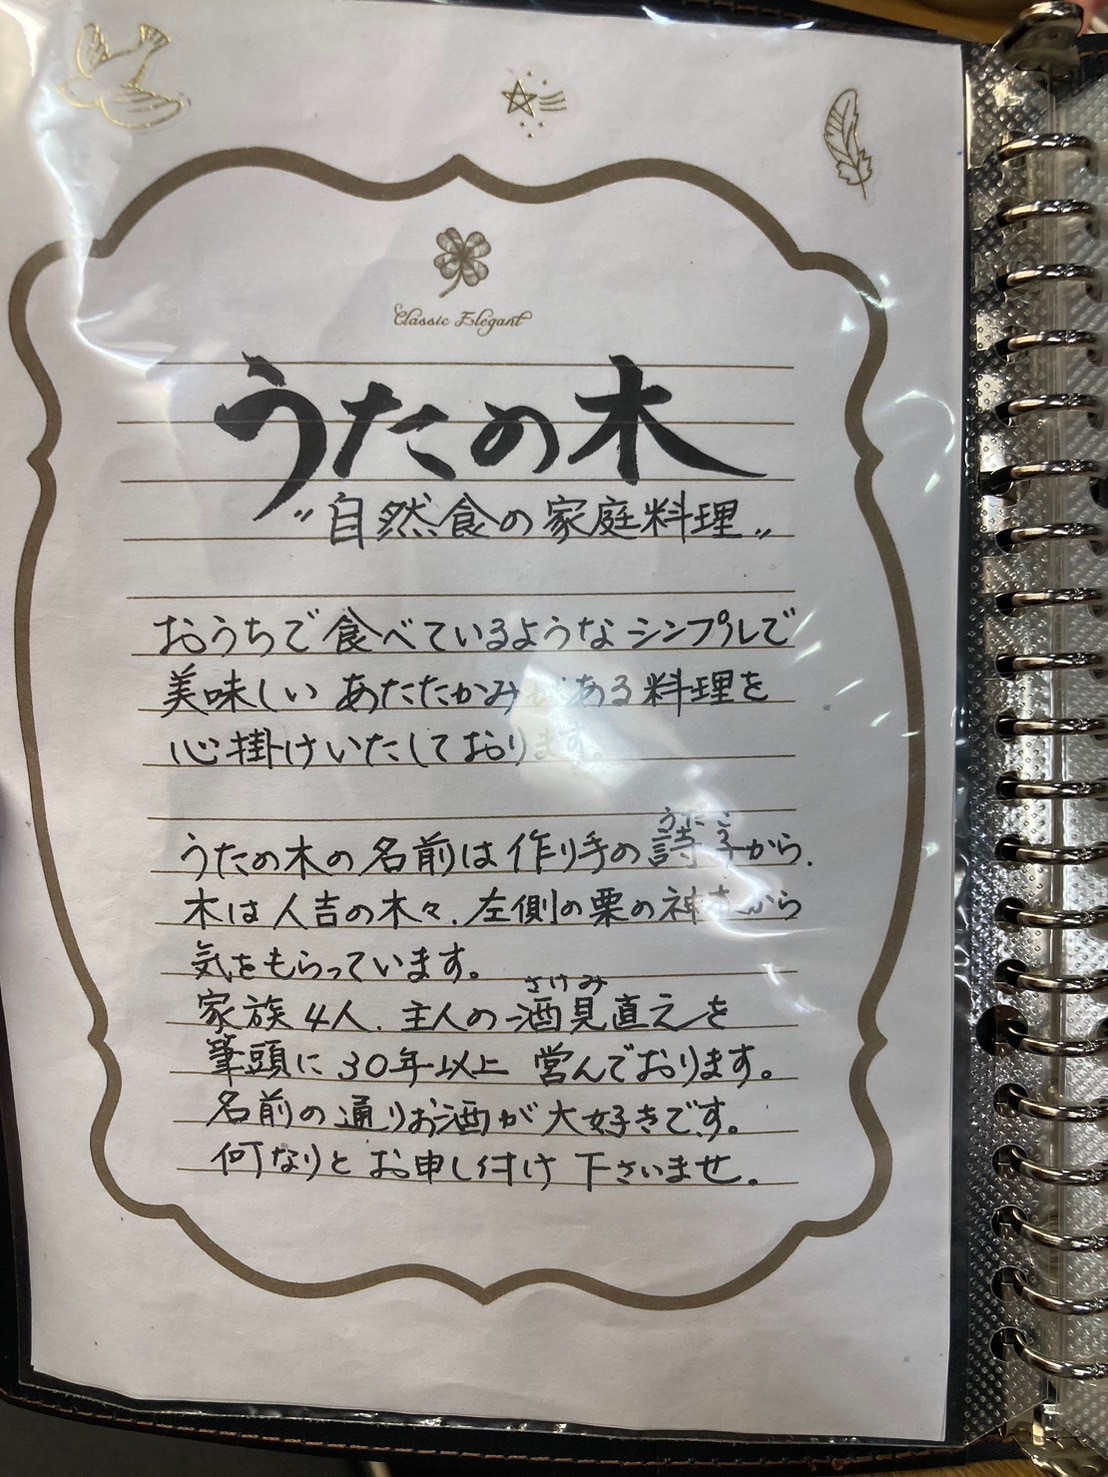 Classic Elegant
うたの木
"自然食の家庭料理"
おうちで食べているようなシンプルで
美味しい あたたかみがある料理を
心掛けいたしております。
うたの木の名前は作り手の詩子から.
うたこ
木は人吉の木々.左側の栗の神木から
気をもらっています。
さけみ
家族4人.主人の酒見直えを
筆頭に30年以上 営んでおります。
名前の通りお酒が大好きです。
何なりとお申し付け下さいませ.